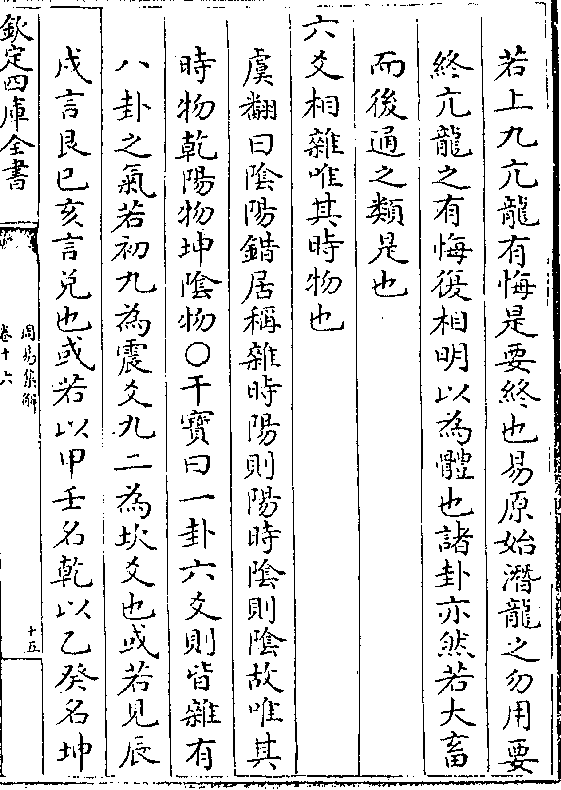 若上九亢龍有悔是要終也易原始潛龍之勿用要
終亢龍之有悔復相明以為體也諸卦亦然若大畜
而後通之類是也
六爻相雜唯其時物也
虞翻曰陰陽錯居稱雜時陽則陽時陰則陰故唯其
時物乾陽物坤陰物〇干寶曰一卦六爻則皆雜有
八卦之氣若初九為震爻九二為坎爻也或若見辰
戌言艮巳亥言兌也或若以甲壬名乾以乙癸名坤
欽定四庫全書
周易集解
卷十六
十五